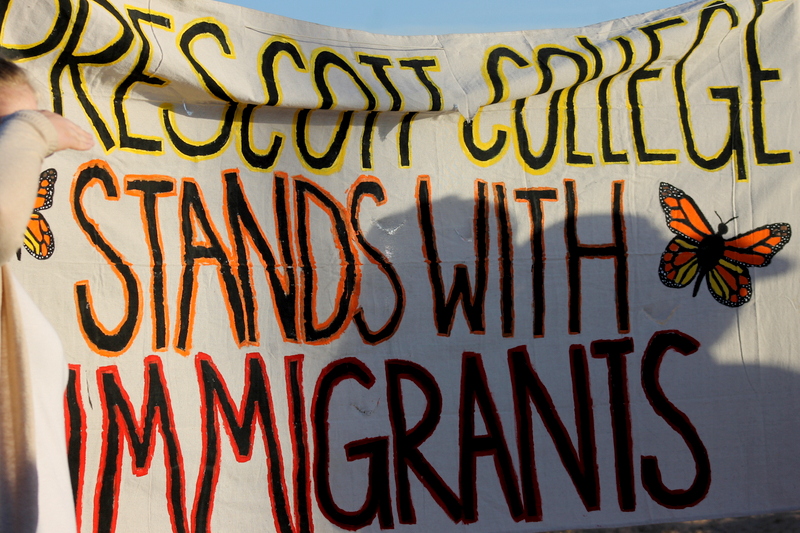 PRESCOTT COLLEGE
STANDS WITH
IMMIGRANTS